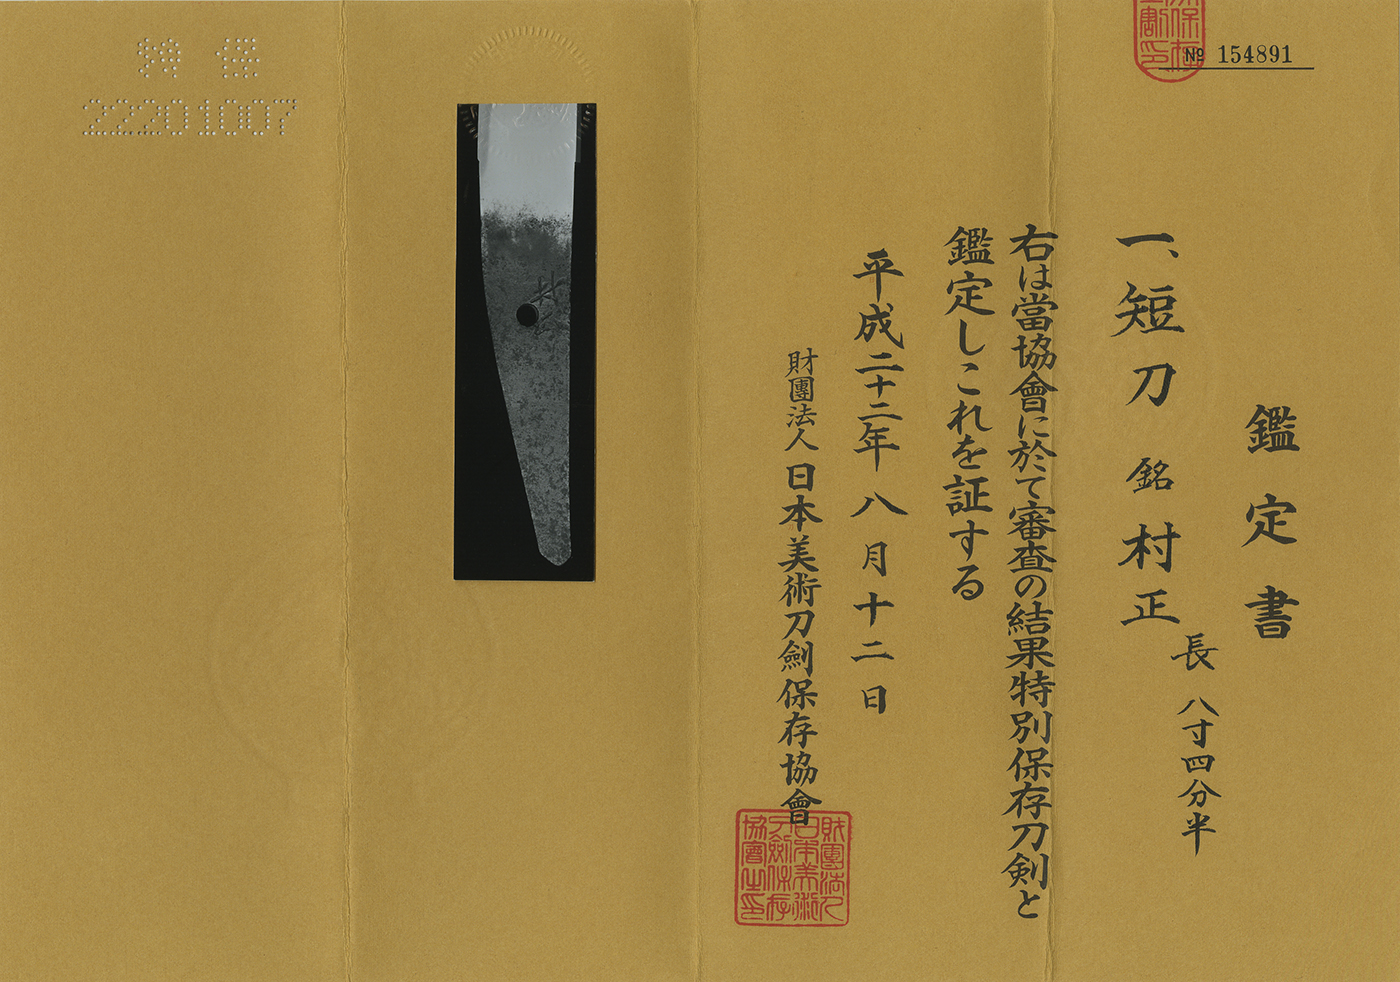 № 154891
鑑定書
一、短刀 銘 村正
長 八寸四分半
右は當協會に於て審査の結果特別保存刀剣と
鑑定しこれを証する
平成二十二年八月十二日
財團法人日本美術刀劍保存協會
財團法人
日本美術
刀劍保存
協會之印
特保
22201007